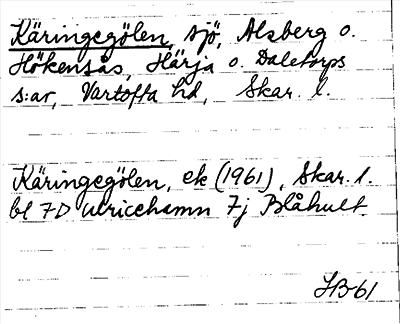 Käringegölen, sjö, Alsberg o.
Hökensås, Härja o. Daletorps
s:ar, Vartofta hd, Skar. l.
Käringegölen, ek (1961), Skar. l.
bl 7D Ulricehamn 7j Blåhult
HB 61